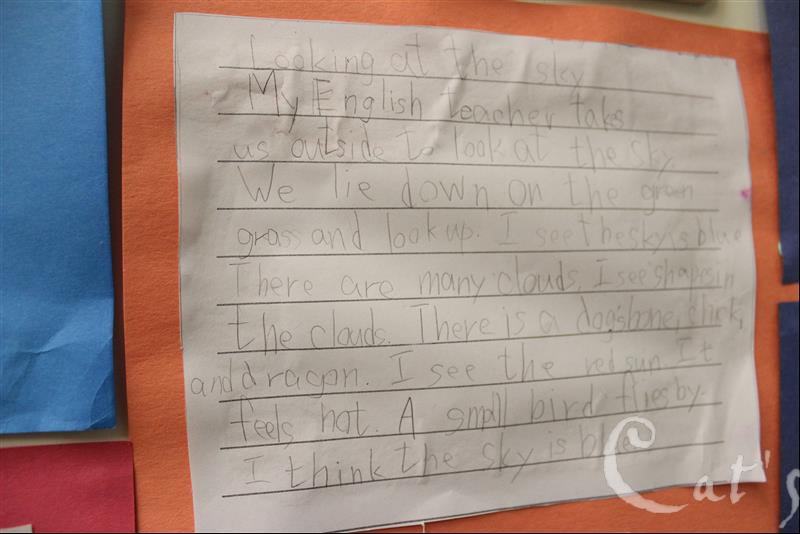 Looking at the sky
My English teacher taks
us outside to look at the sky.
We lie down on the green
grass and look up. I see the sky is blue
There are many clouds. I see shapes in
the clouds. There is a dog's bone, chick,
and dragon. I see the red sun. It
feels hot. A small bird flies by.
I think the sky is blue.
Cat's